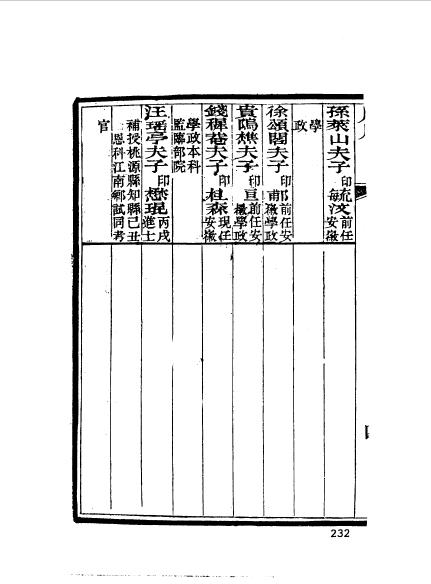 孫萊山夫子印毓汶前任安徽
學政
徐頌閣夫子印郙前任安徽學政
貴塢樵夫子印恒前任安徽學政
錢穉菴夫子印桂森現任安徽
學政本科監臨部院
汪瑤亭夫子印懋琨丙戌進士
補授桃源縣知縣己丑恩科江南鄉試同考
官
232